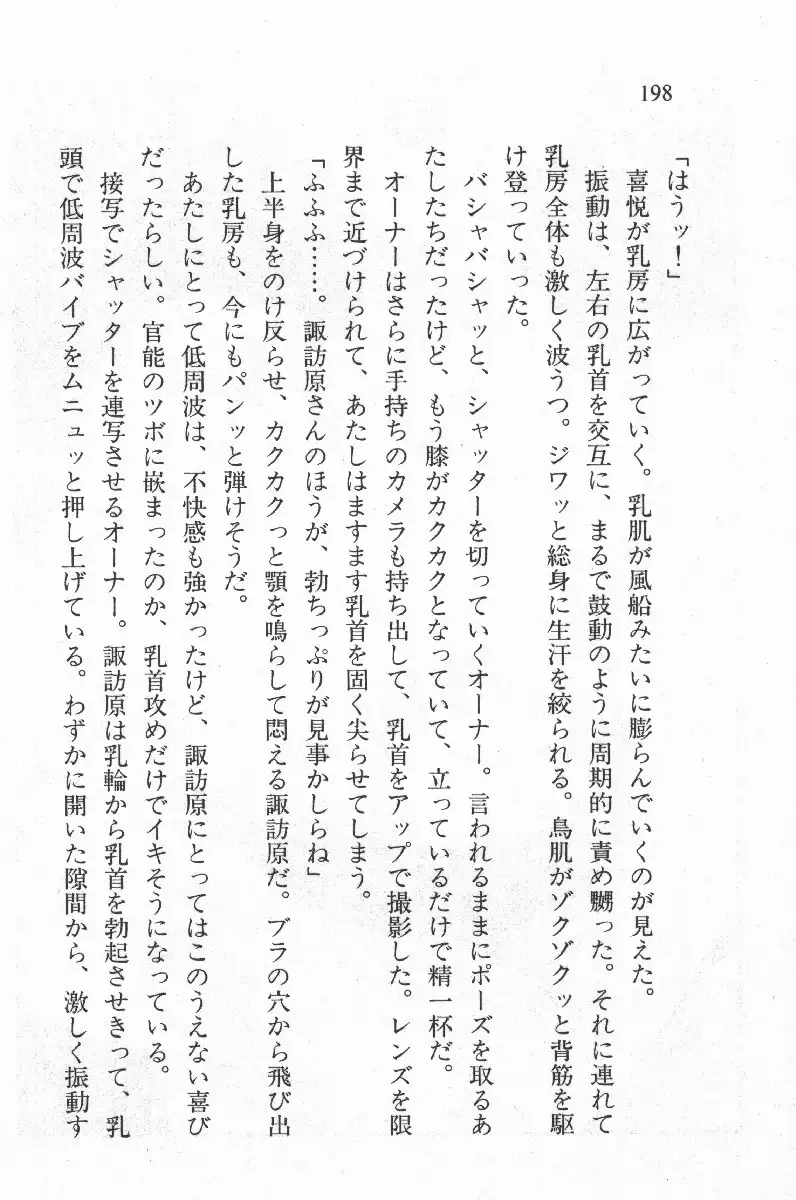 198
「はうッ！」
喜悦が乳房に広がっていく。乳肌が風船みたいに膨らんでいくのが見えた。
振動は、左右の乳首を交互に、まるで鼓動のように周期的に責め嬲った。それに連れて
乳房全体も激しく波うつ。ジワッと総身に生汗を絞られる。鳥肌がゾクゾクッと背筋を駆
け登っていった。
バシャバシャッと、シャッターを切っていくオーナー。言われるままにポーズを取るあ
たしたちだったけど、もう膝がカクカクとなっていて、立っているだけで精一杯だ。
オーナーはさらに手持ちのカメラも持ち出して、乳首をアップで撮影した。レンズを限
界まで近づけられて、あたしはますます乳首を固く尖らせてしまう。
「ふふふ……。諏訪原さんのほうが、勃ちっぷりが見事かしらね」
上半身をのけ反らせ、カクカクっと顎を鳴らして悶える諏訪原だ。ブラの穴から飛び出
した乳房も、今にもパンッと弾けそうだ。
あたしにとって低周波は、不快感も強かったけど、諏訪原にとってはこのうえない喜び
だったらしい。官能のツボに嵌まったのか、乳首攻めだけでイキそうになっている。
接写でシャッターを連写させるオーナー。諏訪原は乳輪から乳首を勃起させきって、乳
頭で低周波バイブをムニュッと押し上げている。わずかに開いた隙間から、激しく振動す